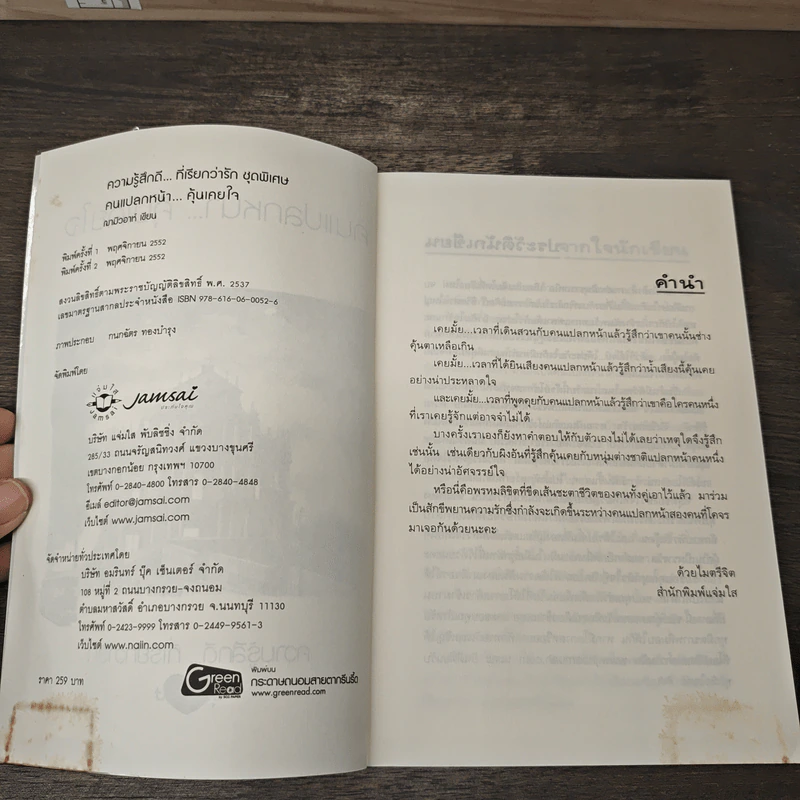 ความรู้สึกดี... ที่เรียกว่ารัก ชุดพิเศษ
คนแปลกหน้า... คุ้นเคยใจ
ฌามิวอาห์ เขียน
พิมพ์ครั้งที่ 1 พฤศจิกายน 2552
พิมพ์ครั้งที่ 2 พฤศจิกายน 2552
สงวนลิขสิทธิ์ตามพระราชบัญญัติลิขสิทธิ์ พ.ศ. 2537
เลขมาตรฐานสากลประจำหนังสือ ISBN 978-616-06-0052-6
ภาพประกอบ กนกฉัตร ทองบำรุง
จัดพิมพ์โดย
แจ่มใส
JAMSAI
Jamsai
บริษัท แจ่มใส พับลิชชิ่ง จำกัด
285/33 ถนนจรัญสนิทวงศ์ แขวงบางขุนศรี
เขตบางกอกน้อย กรุงเทพฯ 10700
โทรศัพท์ 0-2840-4800 โทรสาร 0-2840-4848
อีเมล์ editor@jamsai.com
เว็บไซต์ www.jamsai.com
จัดจำหน่ายทั่วประเทศโดย
บริษัท อมรินทร์ บุ๊ค เซ็นเตอร์ จำกัด
108 หมู่ที่ 2 ถนนบางกรวย-จงถนอม
ตำบลมหาสวัสดิ์ อำเภอบางกรวย จ.นนทบุรี 11130
โทรศัพท์ 0-2423-9999 โทรสาร 0-2449-9561-3
เว็บไซต์ www.naiin.com
ราคา 259 บาท
Green Read
พิมพ์บน
กระดาษถนอมสายตากรีนรี้ด
www.greenread.com
คำนำ
เคยมั้ย...เวลาที่เดินสวนกับคนแปลกหน้าแล้วรู้สึกว่าเขาคนนั้นช่าง
คุ้นตาเหลือเกิน
เคยมั้ย...เวลาที่ได้ยินเสียงคนแปลกหน้าแล้วรู้สึกว่าน้ำเสียงนี้คุ้นเคย
อย่างน่าประหลาดใจ
และเคยมั้ย...เวลาที่พูดคุยกับคนแปลกหน้าแล้วรู้สึกว่าเขาคือใครคนหนึ่ง
ที่เราเคยรู้จักแต่อาจจำไม่ได้
บางครั้งเราเองก็ยังหาคำตอบให้กับตัวเองไม่ได้เลยว่าเหตุใดจึงรู้สึก
เช่นนั้น เช่นเดียวกับผิงอันที่รู้สึกคุ้นเคยกับหนุ่มต่างชาติแปลกหน้าคนหนึ่ง
ได้อย่างน่าอัศจรรย์ใจ
หรือนี่คือพรหมลิขิตที่ขีดเส้นชะตาชีวิตของคนทั้งคู่เอาไว้แล้ว มาร่วม
เป็นสักขีพยานความรักซึ่งกำลังจะเกิดขึ้นระหว่างคนแปลกหน้าสองคนที่โคจร
มาเจอกันด้วยนะคะ
ด้วยไมตรีจิต
สำนักพิมพ์แจ่มใส